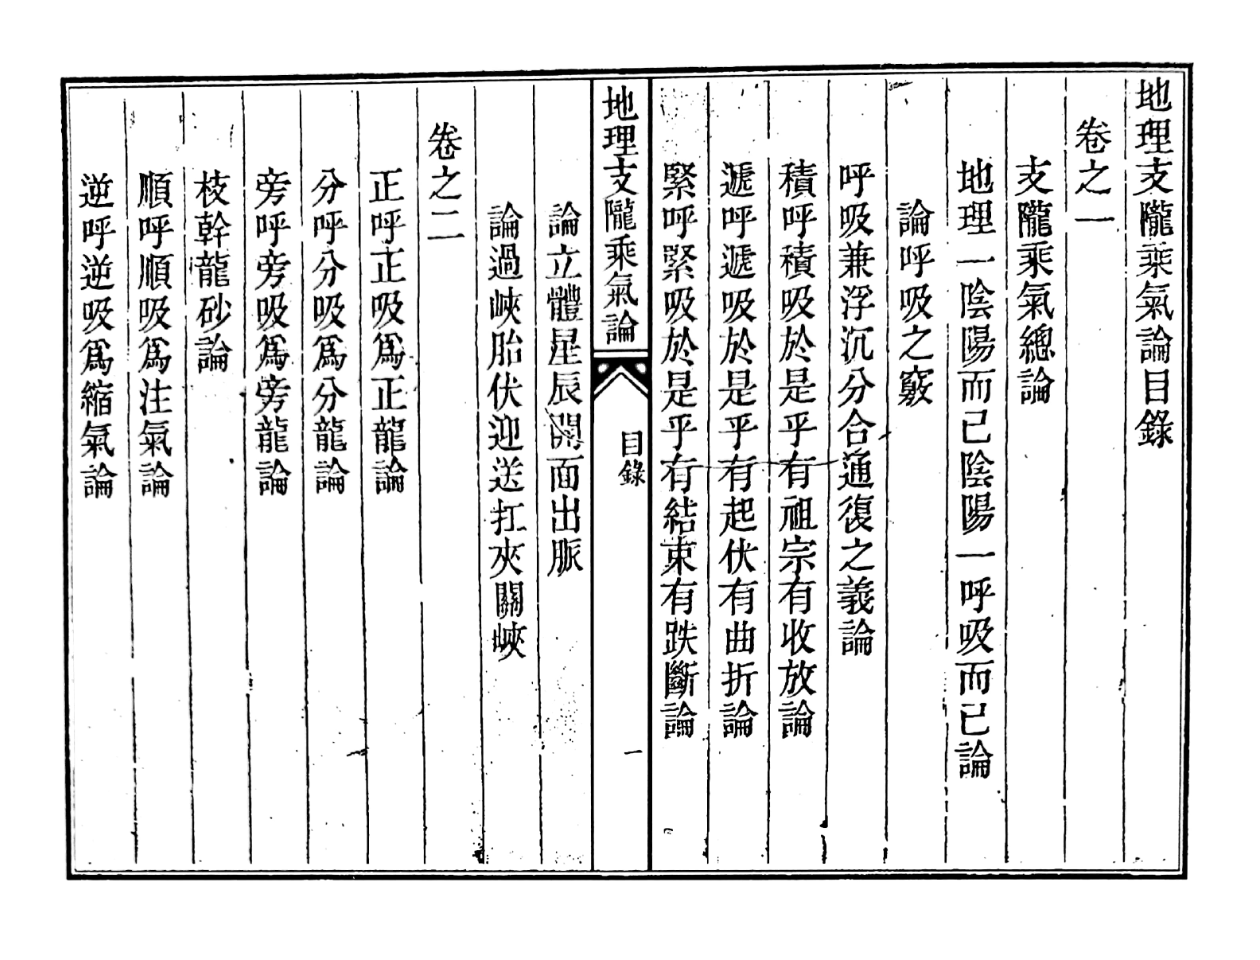 地理支隴乘氣論目錄
卷之一
支隴乘氣總論
地理一陰陽而已陰陽一呼吸而已論
論呼吸之竅
呼吸兼浮沉分合通復之義論
積呼積吸於是乎有祖宗有收放論
遞呼遞吸於是乎有起伏有曲折論
緊呼緊吸於是乎有結束有跌斷論
地理支隴乘氣論
目錄
一
論立體星辰開面出脈
論過峽胎伏迎送扛夾關峽
卷之二
正呼正吸爲正龍論
分呼分吸爲分龍論
旁呼旁吸爲旁龍論
枝幹龍砂論
順呼順吸爲注氣論
逆呼逆吸爲縮氣論